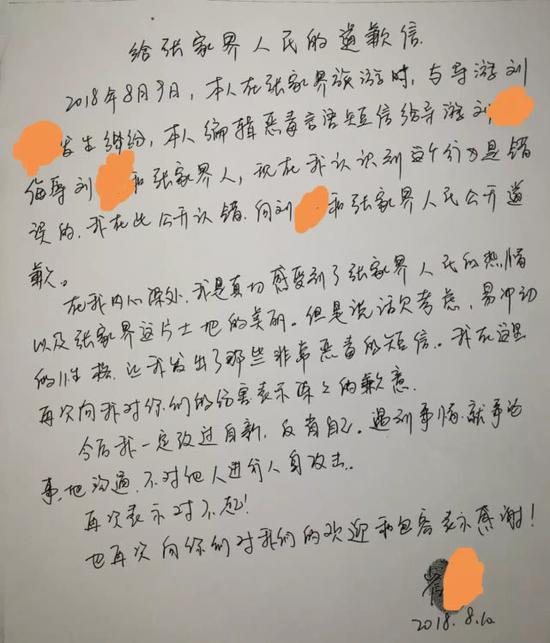 给张家界人民的道歉信
2018年8月9日，本人在张家界旅游时，与导游刘
发生纠纷，本人编辑恶毒言语短信给导游刘
侮辱刘 和张家界人，现在我认识到这个行为是错
误的.我在此公开认错.向刘 和张家界人民公开道
歉。
在我内心深处.我是真切感受到了张家界人民的热情
以及张家界这片土地的美丽。但是说话欠考虑，易冲动
的性格.让我发出了那些非常恶毒的短信。我在这里
再次向我对你们的伤害表示深深的歉意.
今后我一定改过自新，反省自己。遇到事情.就事论
事.地沟通.不对他人进行人身攻击.
再次表示对不起!
也再次向你们对我们的欢迎和包容表示感谢!
2018.8.10